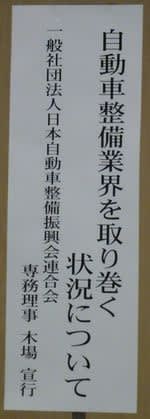 自動車整備業界を取り巻く
状況について
一般社団法人日本自動車整備振興会連合会
専務理事 木場 宣行